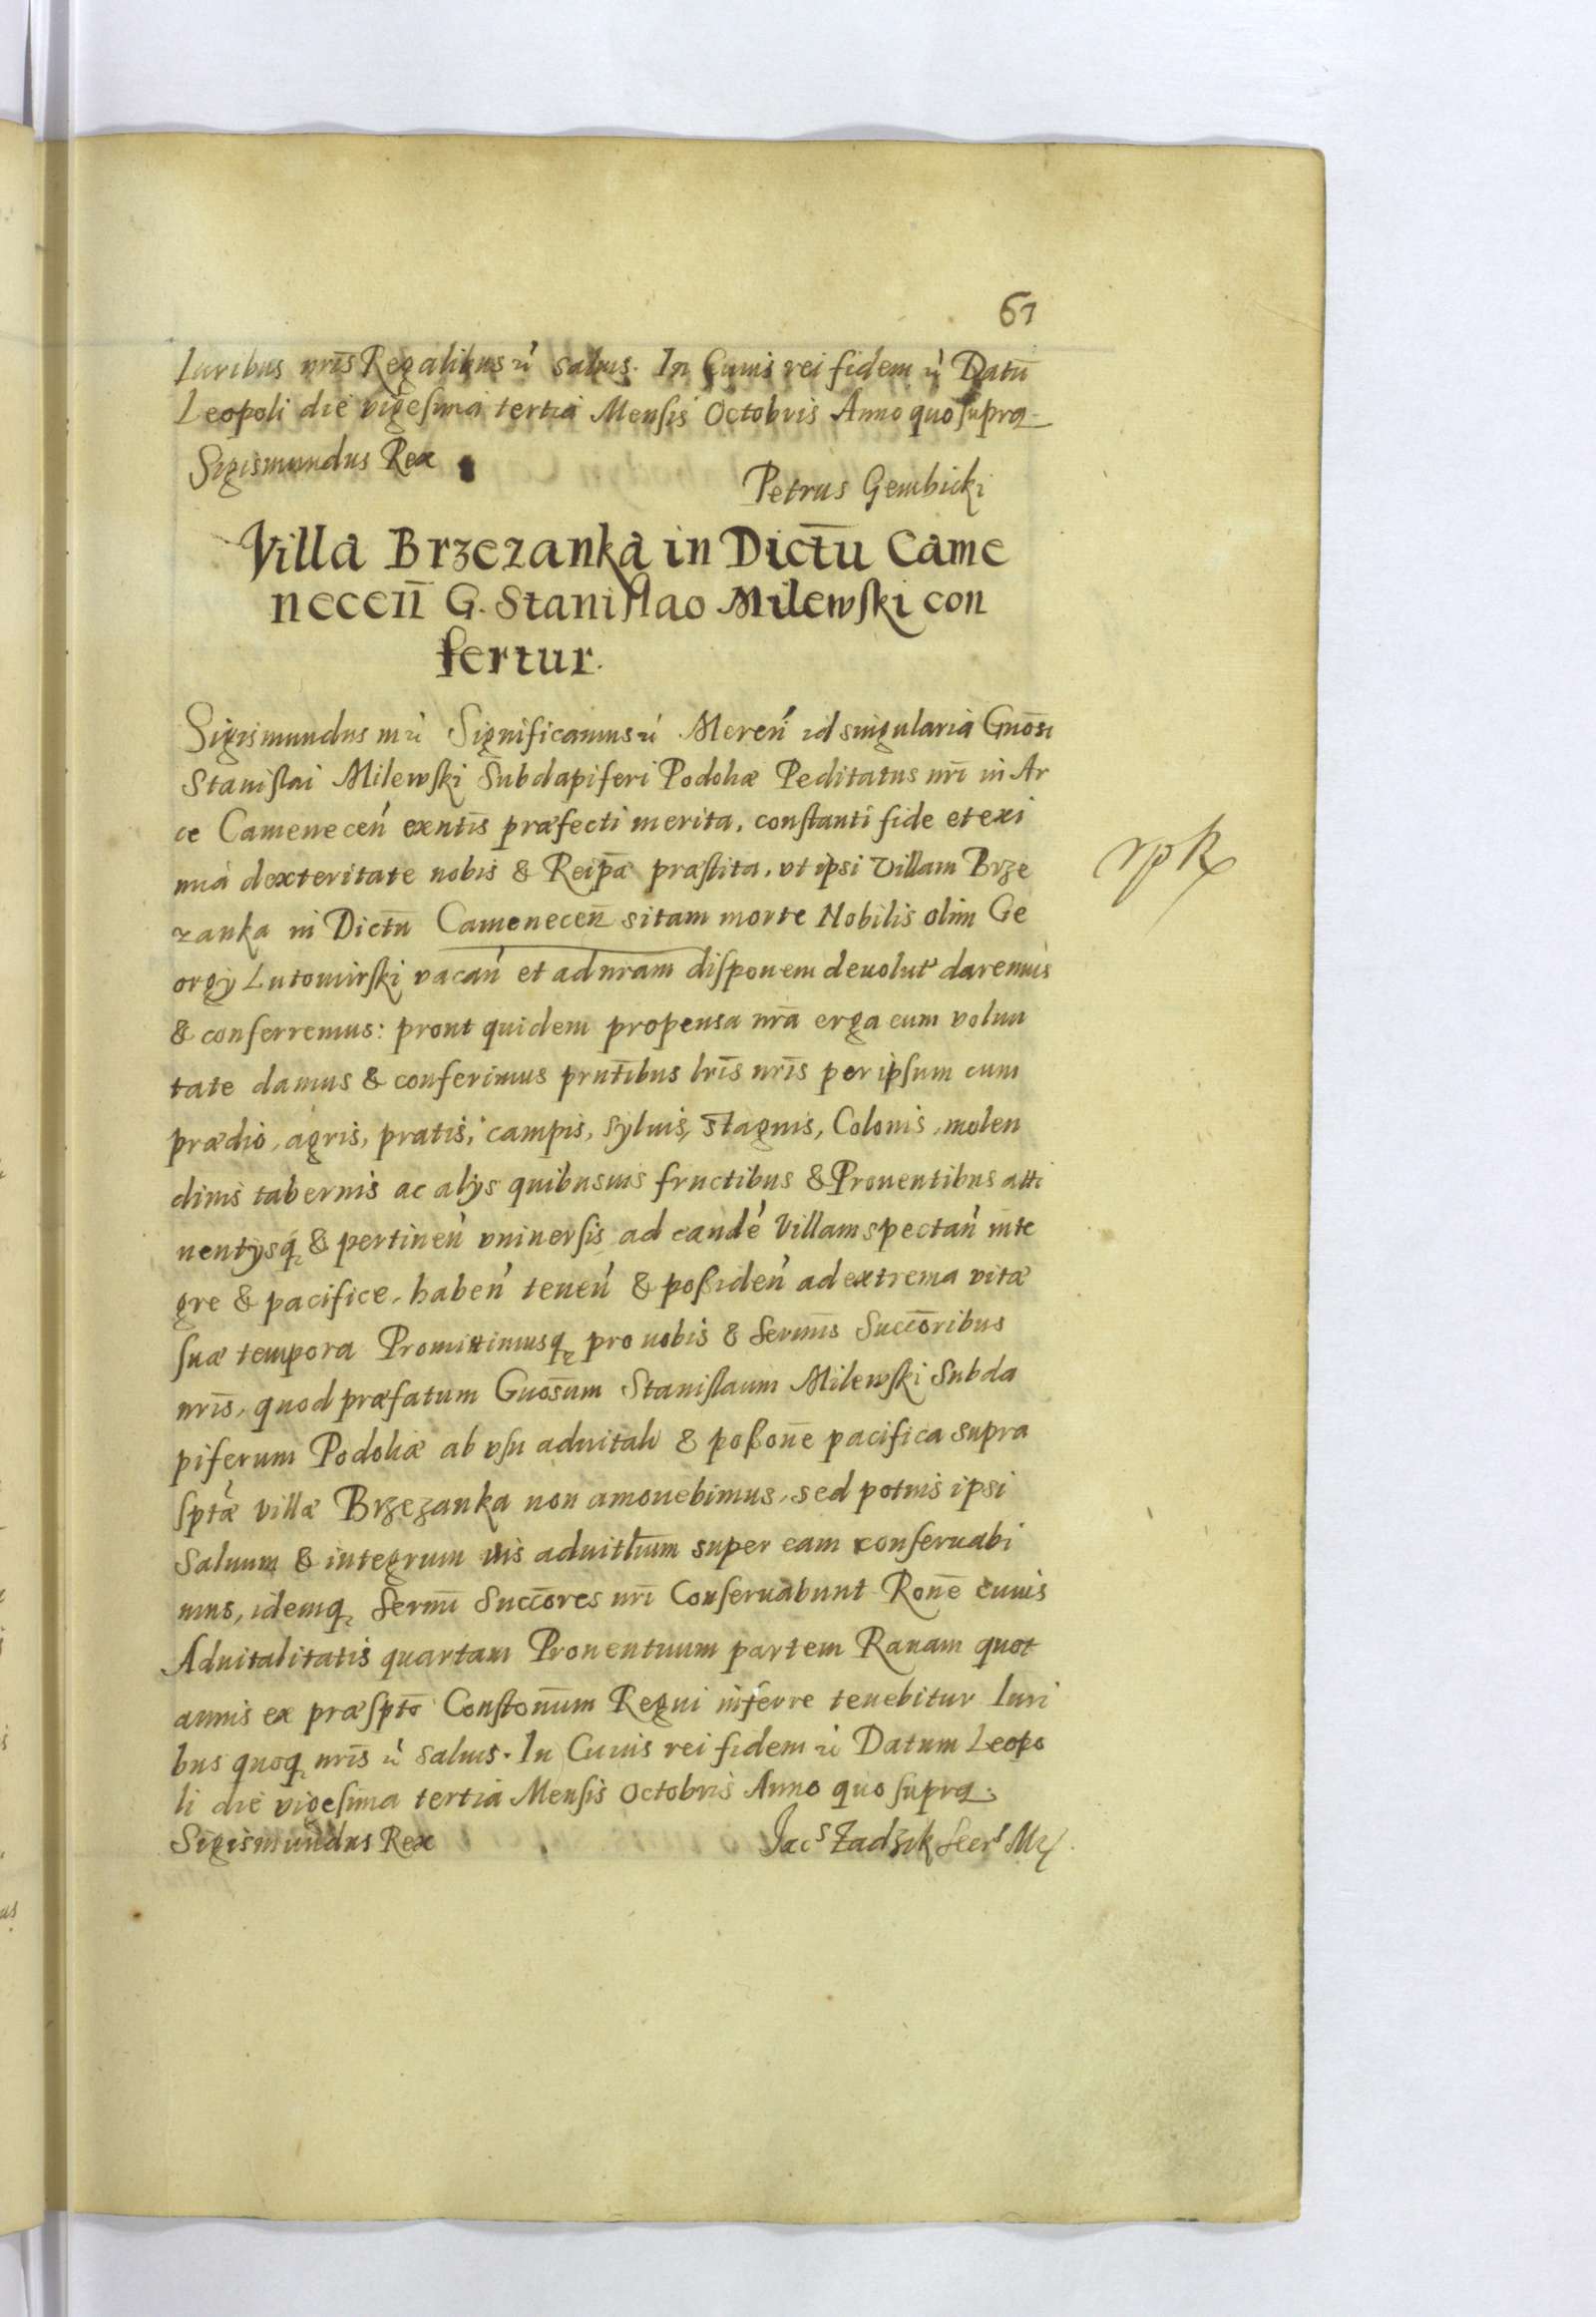 61
Iuribus nr̄is Regalibus ić saluis. In Cuius rei fidem ić Datū
Leopoli die vigesima tertia Mensis Octobris Anno quo supra
Sigismundus Rex
Petrus Gembicki
Villa Brzezanka in Dictū Came
necen̄ G. Stanislao Milewski con
fertur.
Sigismundus III ić Significamus ić Meren̄ id singularia Gnōsi
Stanislai Milewski Subdapiferi Podoliæ Peditatus nr̄i in Ar
ce Camenecen̄ exn̄tis præfecti merita, constanti fide et exi
mia dexteritate nobis & Reipā præstita, vt ipsi Villam Brze
zanka in Dictū Camenecen̄ sitam morte Nobilis olim Ge
orgÿ Lutomirski vacan̄ et ad nr̄am dispoñem deuolut' daremus
& conferremus: prout quidem propensa nrā erga eum volun
tate damus & conferimus prn̄tibus lrīs nrīs per ipsum cum
prædio, agris, pratis, campis, syluis, stagnis, Colonis, molen
dinis tabernis ac alÿs quibusuis fructibus & Prouentibus atti
nentÿsq & pertinen̄ vniuersis ad eandē Villam spectan̄ inte
gre & pacifice, haben̄ tenen̄ & possiden̄ ad extrema vitæ
suæ tempora Promittimusq pro nobis & Sermīs Succōribus
nrīs, quod præfatum Gnōsum Stanislaum Milewski Subda
piferum Podoliæ ab vsu aduitali & possōne pacifica supra
sptæ villæ Brzezanka non amouebimus, sed potius ipsi
Saluum & integrum ius aduitl̄ium super eam conseruabi
mus, idemq Sermī Succōres nrī Conseruabunt Ronē cuius
Aduitalitatis quartam Prouentuum partem Rauam quot
annis ex præsptō Constōnum Regni inferre tenebitur Iuri
bus quoq nrīs ić saluis. In Cuius rei fidem ić Datum Leopo
li die vigesima tertia Mensis Octobris Anno quo supra.
Sigismundus Rex
Jacs Zadzik Secrs Mr